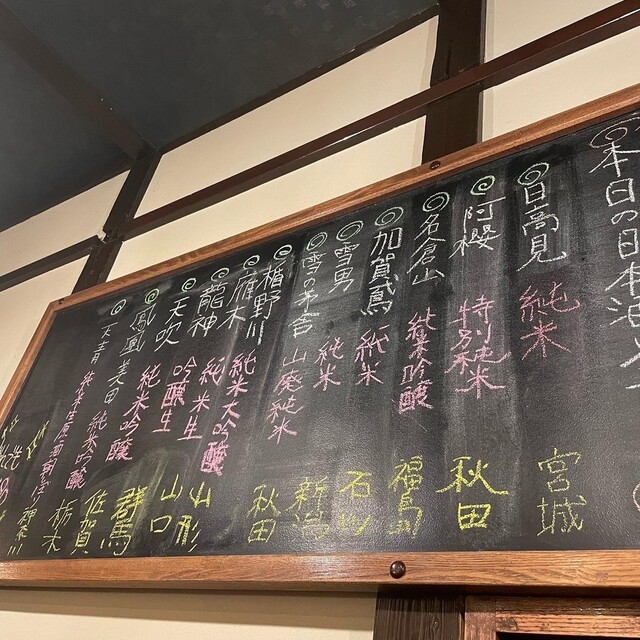 本日の日本酒
◎日高見 純米 宮城
◎阿櫻 特別純米 秋田
◎名倉山 純米吟醸 福島
◎加賀鳶 純米 石川
◎雪男 純米 新潟
◎雪の茅舎 山廃純米 秋田
◎楯野川 純米大吟醸 山形
◎雁木 純米生 山口
◎龍神 吟醸生 群馬
◎天吹 純米吟醸 佐賀
◎鳳凰美田 純米吟醸 栃木
◎天青 純米 神奈川